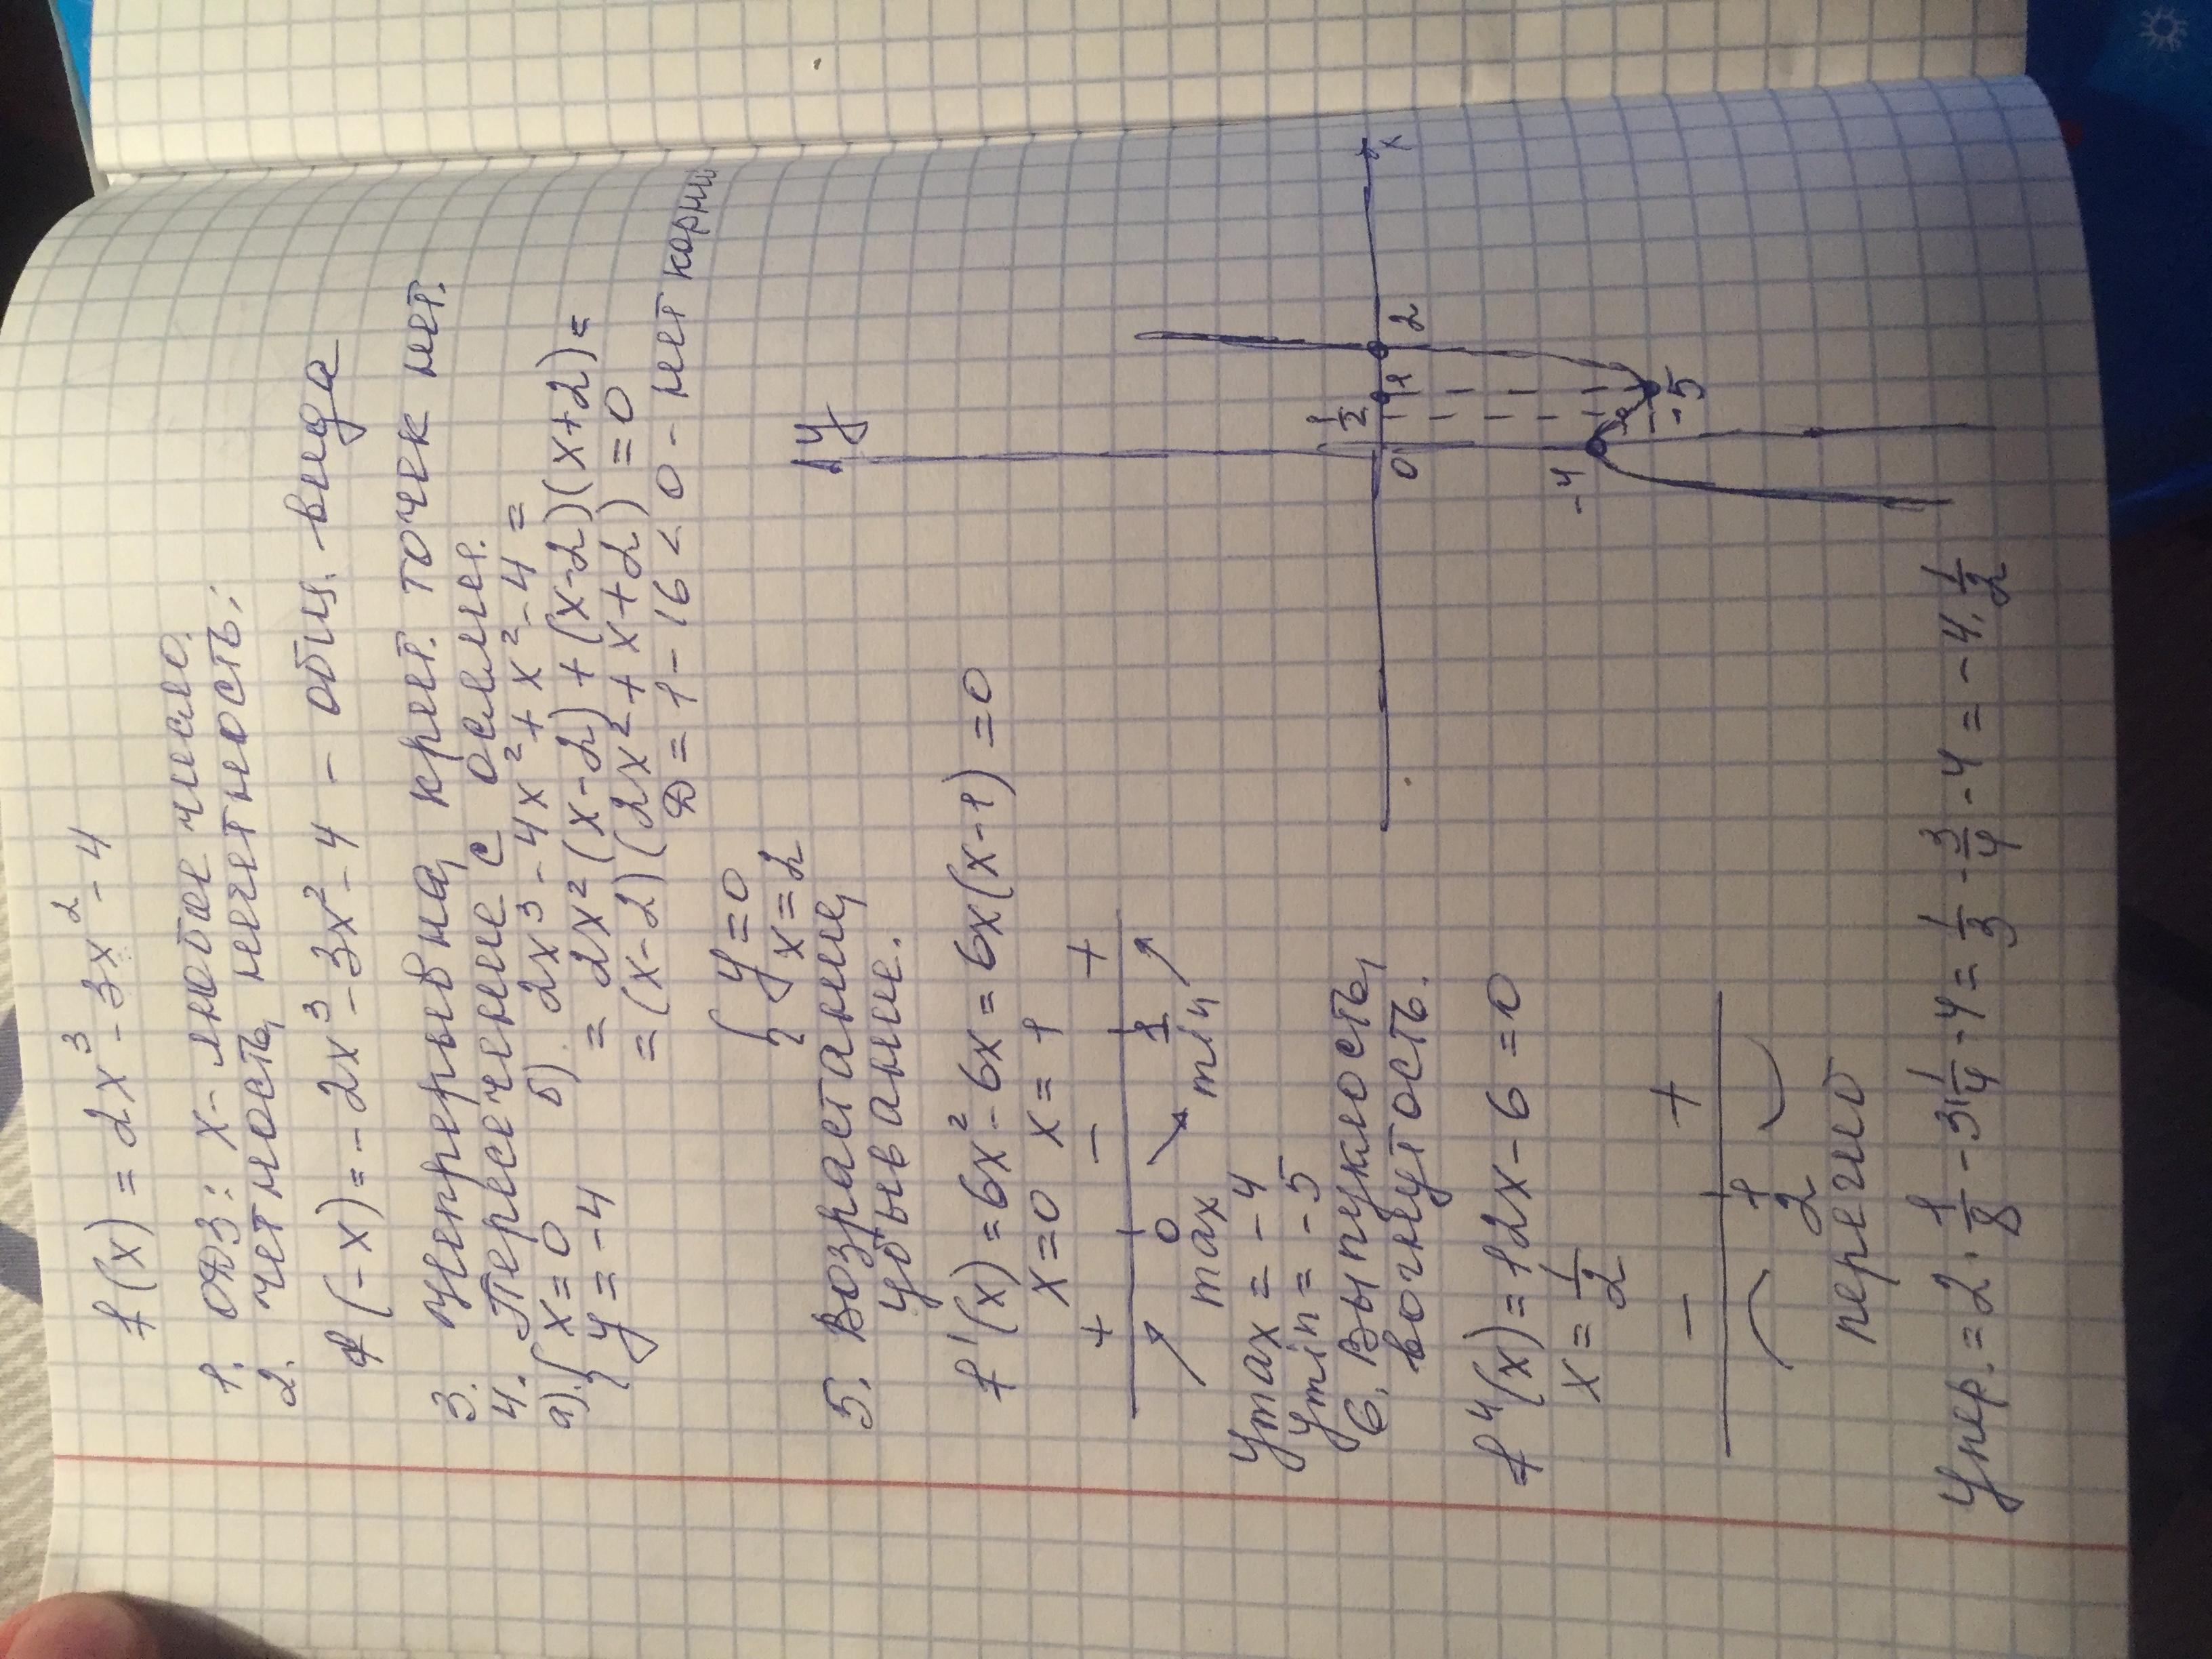 f(x) = 2x³ - 3x² - 4
1. ОДЗ: x - любое число.
2. четность, нечетность:
f(-x) = -2x³ - 3x² - 4 - общ. вида
3. Непрерывна, крит. точек нет.
4. Пересечение с осями.
а). { x = 0
y = -4
б). 2x³ - 4x² + x² - 4 =
= 2x²(x-2) + (x-2)(x+2) =
= (x-2)(2x² + x + 2) = 0
D = 1 - 16 < 0 - нет корни
{ y = 0
x = 2
5. Возрастание,
убывание.
f'(x) = 6x² - 6x = 6x(x-1) = 0
x = 0 x = 1
+ - +
0 1
max min
ymax = -4
ymin = -5
6. Выпуклость,
вогнутость.
f''(x) = 12x - 6 = 0
x = 1/2
- +
1/2
перегиб
yпер. = 2 · 1/8 - 3 1/4 - 4 = 1/3 - 3/4 - 4 = -4,1/2
y
1/2
0 1 2 x
-4
-5